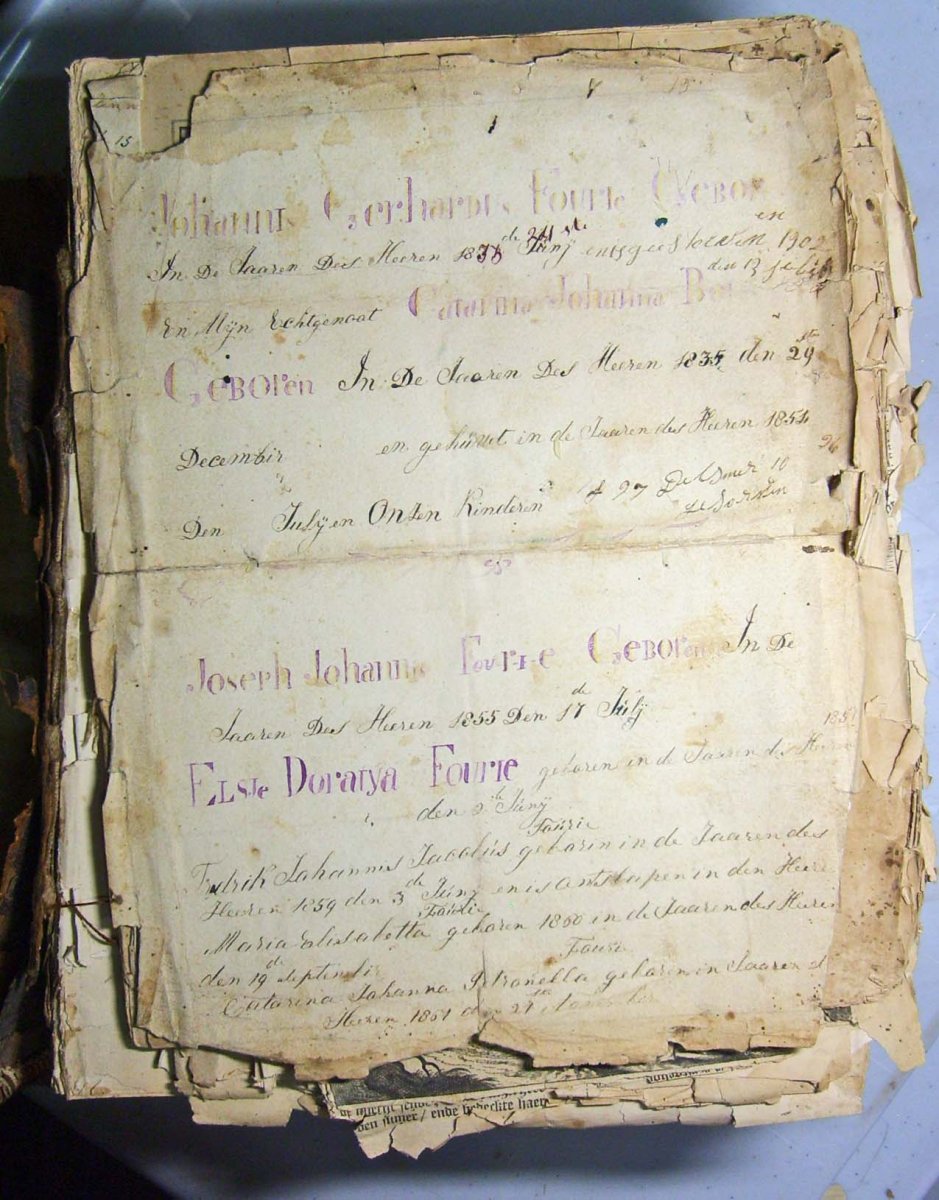 15
Johannis Gerhardus Fourie Gebor
In De Jaaren Des Heeren 183 de 24ste Junij en is gestorven 190
den 13
En Mijn Echtgenoot Catarina Johanna Bo
Geboren In De Jaaren Des Heeren 1835 den 29ste
Decembir en gehuwt in de Jaaren des Heeren 1854
Den Julij en Onzen Kinderen 97 10
Joseph Johannis Fourie Geboren In De
Jaaren Des Heeren 1855 Den 17de Julij
Elsje Doratya Fourie geboren in de Jaaren des Heeren 185
den 2de Junij
Fourie
Fredrik Johannis Jacobus geborin in de Jaaren des
Heeren 1859 den 3de Junij en is ontslapen in den Heere
Fourie
Maria Elisabetta geboren 1860 in de Jaaren des Heeren
den 19de Septembir
Fourie
Catarina Johanna Petronella geboren in Jaaren d
Heeren 1861 den 21ste November
den suyver / ende bedeckte haer